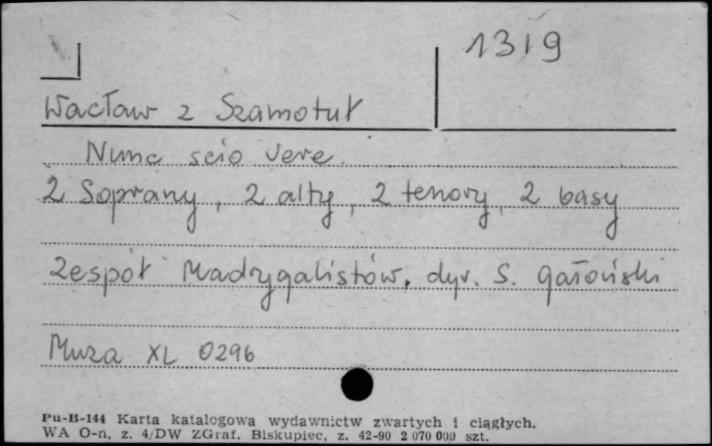 1319
Wacław z Szamotuł
Nunc scio vere
2 Soprany, 2 alty, 2 tenory, 2 basy
Zespół Madrygalistów, dyr. S. Gałoński
Muza XL 0296
Pu-B-144 Karta katalogowa wydawnictw zwartych i ciągłych.
WA O-n, z. 4/DW ZGraf. Biskupiec, z. 42-90 2 070 000 szt.